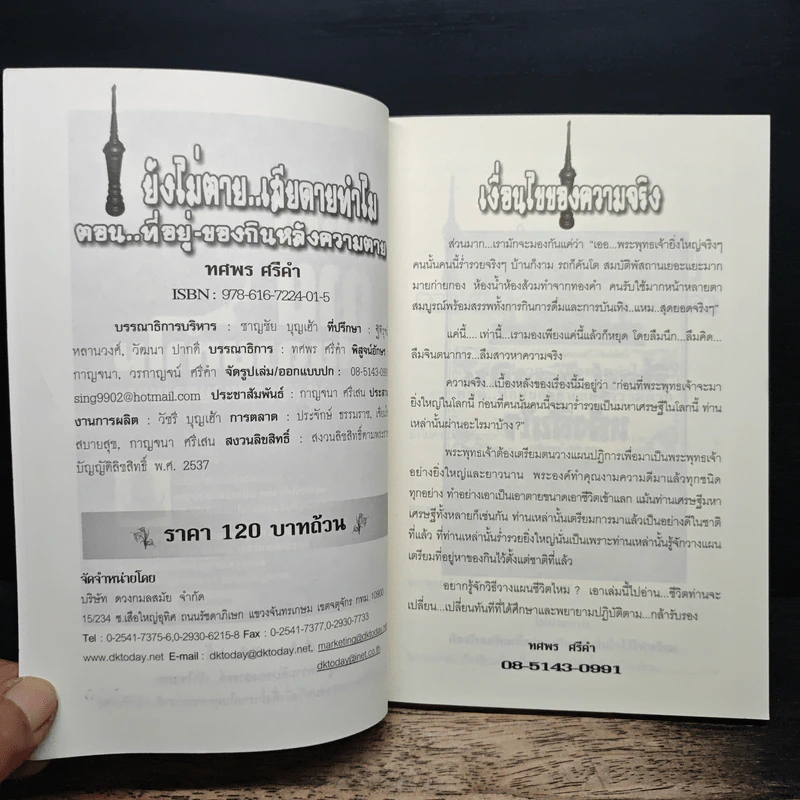 ยังไม่ตาย..เสียดายทำไม
ตอน..ที่อยู่-ของกินหลังความตาย
ทศพร ศรีคำ
ISBN : 978-616-7224-01-5
บรรณาธิการบริหาร : ชาญชัย บุญเฮ้า ที่ปรึกษา :
หลานวงศ์, วัฒนา ปากดี บรรณาธิการ : ทศพร ศรีคำ พิสูจน์อักษร
กาญจนา, วรกาญจน์ ศรีคำ จัดรูปเล่ม/ออกแบบปก : 08-5143-0991
sing9902@hotmail.com ประชาสัมพันธ์ : กาญจนา ศรีเสน
งานการผลิต : วัชรี บุญเฮ้า การตลาด : ประจักษ์ ธรรมราช,
สบายสุข, กาญจนา ศรีเสน สงวนลิขสิทธิ์ : สงวนลิขสิทธิ์ตามพระราช
บัญญัติลิขสิทธิ์ พ.ศ. 2537
ราคา 120 บาทถ้วน
จัดจำหน่ายโดย
บริษัท ดวงกมลสมัย จำกัด
15/234 ซ.เสือใหญ่อุทิศ ถนนรัชดาภิเษก แขวงจันทรเกษม เขตจตุจักร กทม. 10900
Tel : 0-2541-7375-6,0-2930-6215-8 Fax : 0-2541-7377,0-2930-7733
www.dktoday.net E-mail : dktoday@dktoday.net, marketing@dktoday.net
dktoday@inet.co.th
เงื่อนไขของความจริง
ส่วนมาก...เรามักจะมองกันแค่ว่า "เออ...พระพุทธเจ้ายิ่งใหญ่จริงๆ
คนนั้นคนนี้ร่ำรวยจริงๆ บ้านก็งาม รถก็คันโต สมบัติพัสถานเยอะแยะมาก
มายก่ายกอง ห้องน้ำห้องส้วมทำจากทองคำ คนรับใช้มากหน้าหลายตา
สมบูรณ์พร้อมสรรพทั้งการกินการดื่มและการบันเทิง...แหม...สุดยอดจริงๆ"
แค่นี้.... เท่านี้...เรามองเพียงแค่นี้แล้วก็หยุด โดยลืมนึก...ลืมคิด...
ลืมจินตนาการ...ลืมสาวหาความจริง
ความจริง...เบื้องหลังของเรื่องนี้มีอยู่ว่า "ก่อนที่พระพุทธเจ้าจะมา
ยิ่งใหญ่ในโลกนี้ ก่อนที่คนนั้นคนนี้จะมาร่ำรวยเป็นมหาเศรษฐีในโลกนี้ ท่าน
เหล่านั้นผ่านอะไรมาบ้าง ?"
พระพุทธเจ้าต้องเตรียมตนวางแผนปฏิการเพื่อมาเป็นพระพุทธเจ้า
อย่างยิ่งใหญ่และยาวนาน พระองค์ทำคุณงามความดีมาแล้วทุกชนิด
ทุกอย่าง ทำอย่างเอาเป็นเอาตายขนาดเอาชีวิตเข้าแลก แม้นท่านเศรษฐีมหา
เศรษฐีทั้งหลายก็เช่นกัน ท่านเหล่านั้นเตรียมการมาแล้วเป็นอย่างดีในชาติ
ที่แล้ว ที่ท่านเหล่านั้นร่ำรวยยิ่งใหญ่นั่นเป็นเพราะท่านเหล่านั้นรู้จักวางแผน
เตรียมที่อยู่หาของกินไว้ตั้งแต่ชาติที่แล้ว
อยากรู้จักวิธีวางแผนชีวิตไหม ? เอาเล่มนี้ไปอ่าน...ชีวิตท่านจะ
เปลี่ยน...เปลี่ยนทันทีที่ได้ศึกษาและพยายามปฏิบัติตาม...กล้ารับรอง
ทศพร ศรีคำ
08-5143-0991